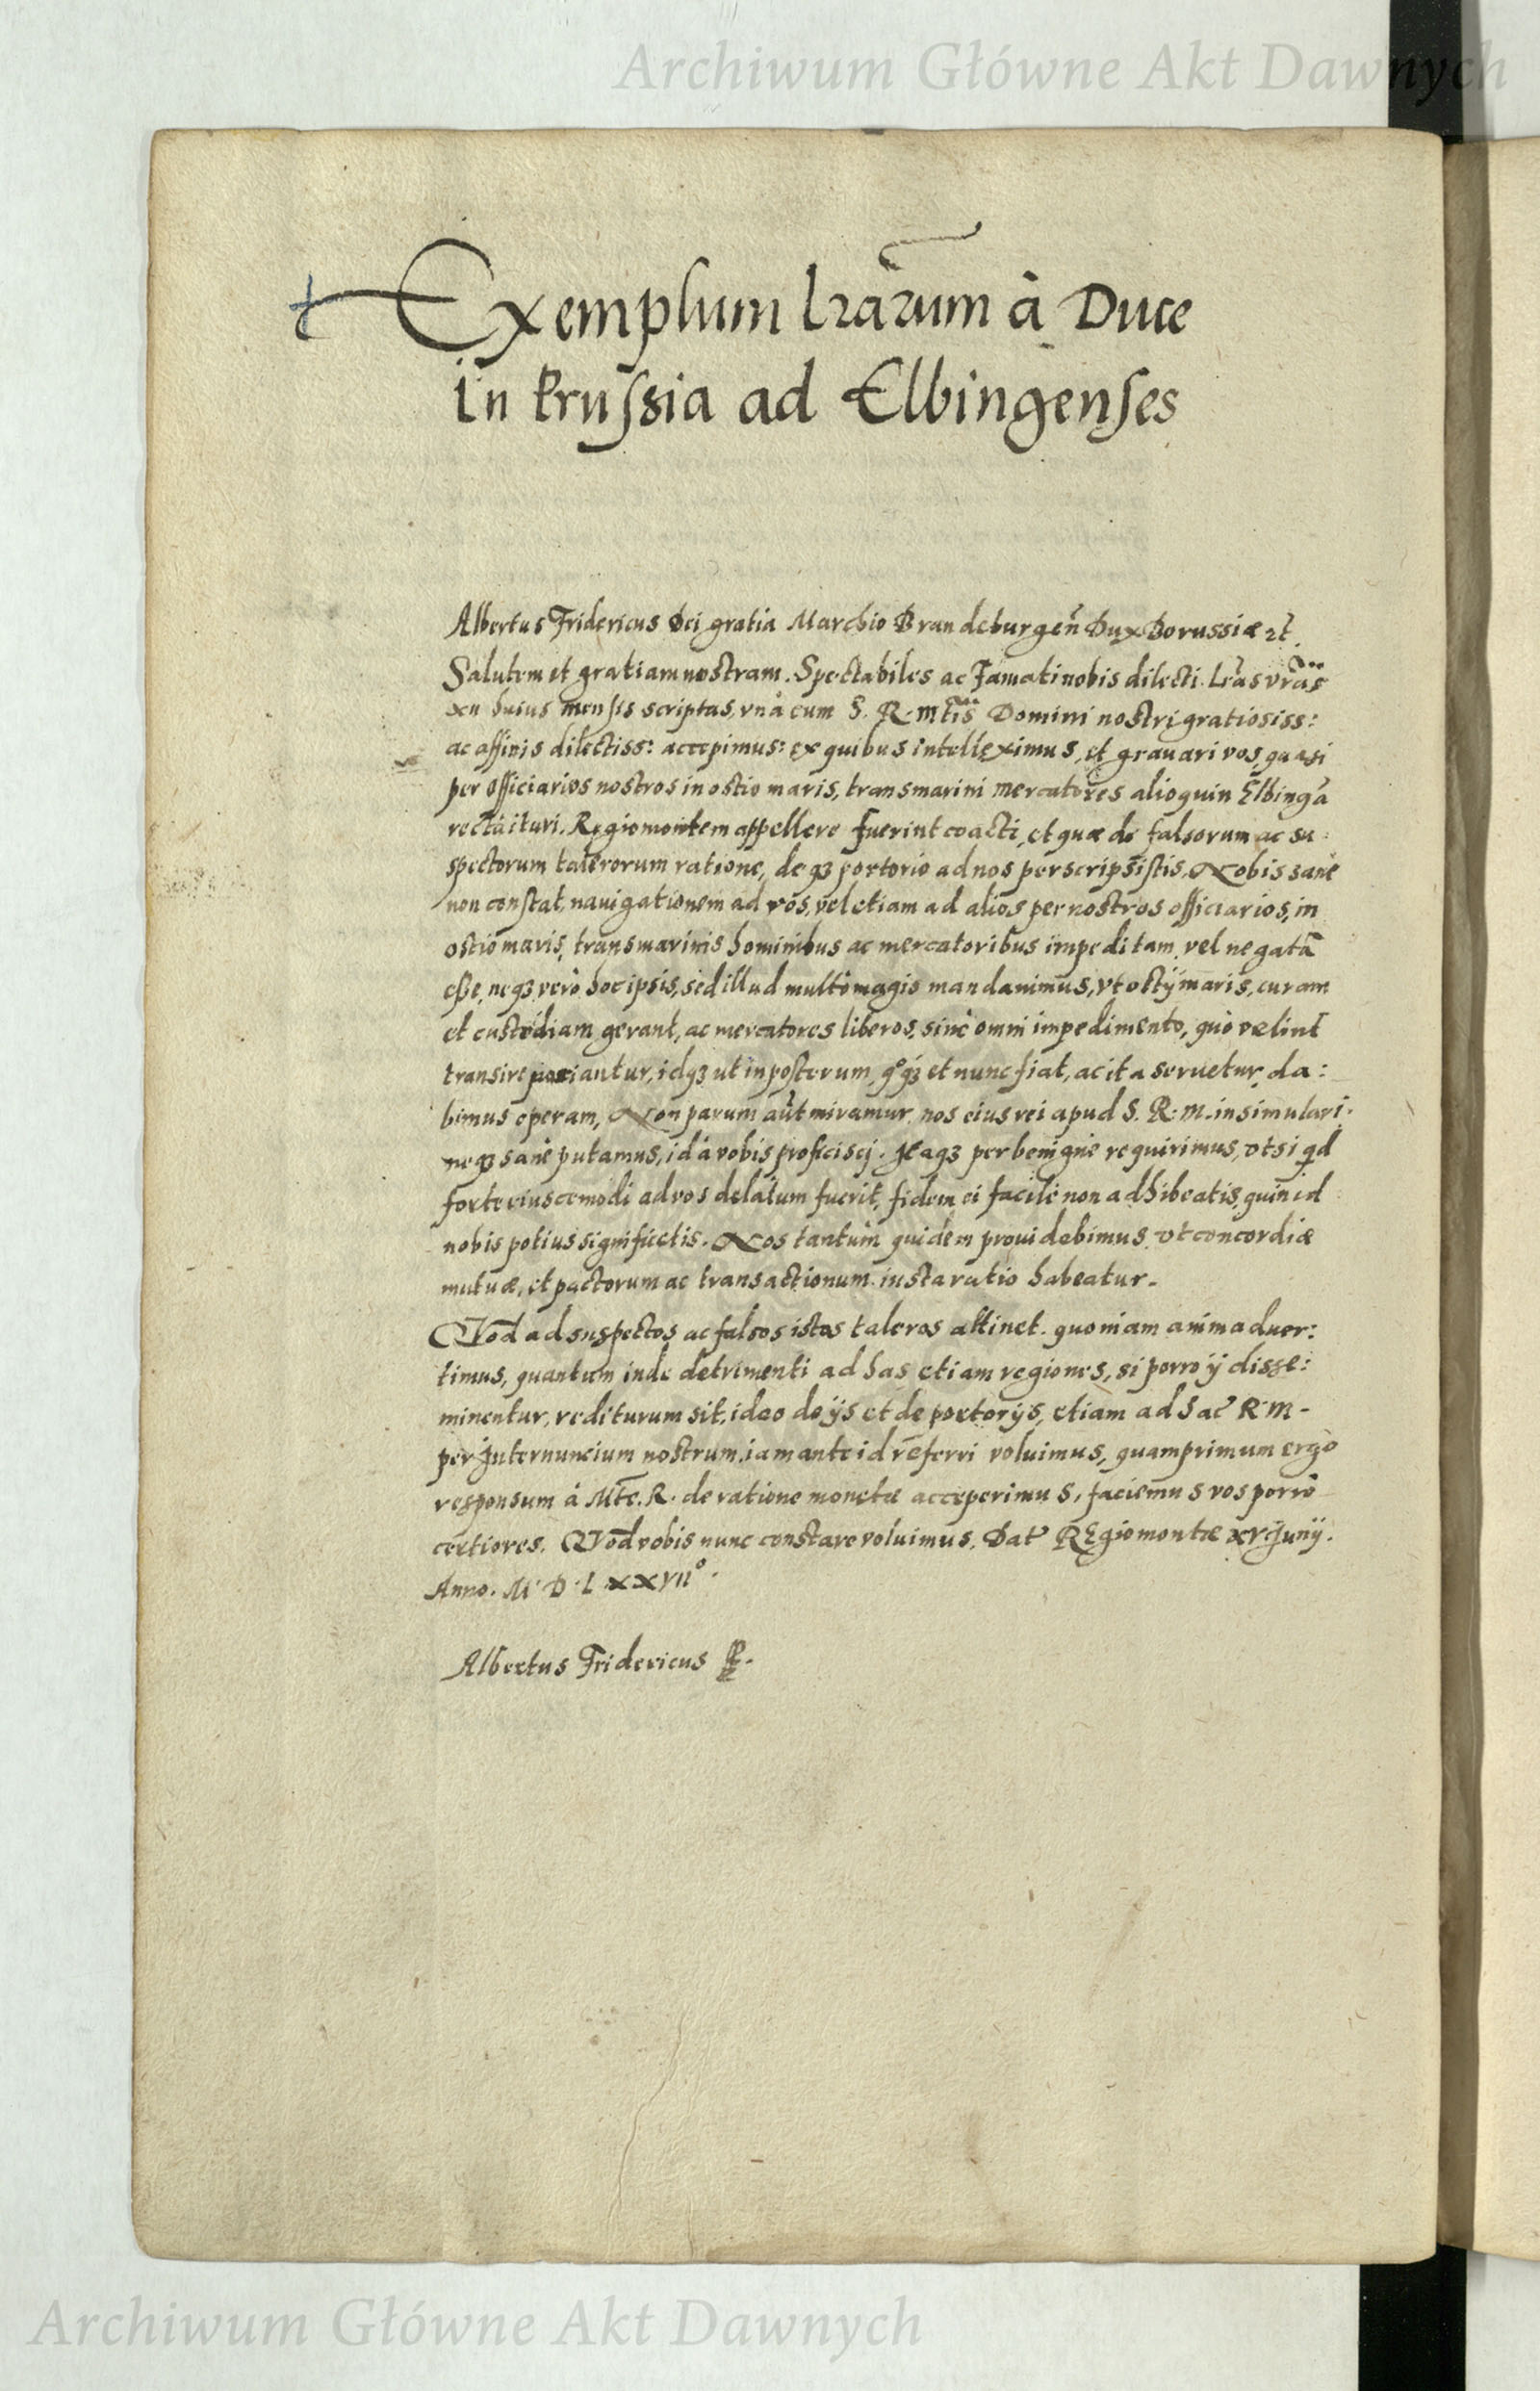 Archiwum Główne Akt Dawnych
Exemplum lrãrum à Duce
in Prussia ad Elbingenses
Albertus Fridericus Dei gratia Marchio Brandeburgeñ Dux Borussiæ ⁊c̃.
Salutem et gratiam nostram. Spectabiles ac Famati nobis dilecti. Lr̃as vr̃as
xii huius mensis scriptas, vnà cum S. R. Mt̃is Domini nostri gratiosiss:
ac affinis dilectiss: accepimus: ex quibus intelleximus, et grauari vos, quasi
per officiarios nostros in ostio maris, transmarini mercatores alioquin Elbingã
rectà ituri, Regiomontem appellere fuerint coacti, et quæ de falsorum ac su:
spectorum talerorum ratione, deqꝫ portorio ad nos perscripsistis. Nobis sanè
non constat, nauigationem ad vos, vel etiam ad alios per nostros officiarios, in
ostio maris, transmarinis hominibus ac mercatoribus impeditam, vel negatã
esse, neqꝫ verò hoc ipsis, sed illud multò magis mandauimus, vt ostij maris, curam
et custodiam gerant, ac mercatores liberos, sinè omni impedimento, quò velint
transire patiantur, idqꝫ ut in posterum, qͦqꝫ et nunc fiat, ac ita seruetur, da:
bimus operam, Non parum aũt miramur, nos eius rei apud S. R. M. insimulari.
neqꝫ sanè putamus, id à vobis proficiscj. Itaqꝫ perbenignè requirimus, vt si qd
forte eiuscemodi ad vos delatum fuerit, fidem ei facilè non adhibeatis, quin id
nobis potius significetis. Nos tantùm quidem prouidebimus, vt concordiæ
mutuæ, et pactorum ac transactionum iusta ratio habeatur.
Qvod ad suspectos ac falsos istos taleros attinet. quoniam animaduer:
timus, quantum inde detrimenti ad has etiam regiones, si porro ij disse:
minentur, rediturum sit, ideo de ijs et de portorijs, etiam ad Sac̃ R M.
per Internuncium nostrum, iam ante id referri voluimus, quamprimum ergo
responsum à Mt̃e. R. de ratione monetæ acceperimus, faciemus vos porrò
certiores. Qvod vobis nunc constare voluimus. Dat̃ REgiomontæ xvi Junij.
Anno. M. D. L xxvijͦ.
Albertus Fridericus
Archiwum Główne Akt Dawnych